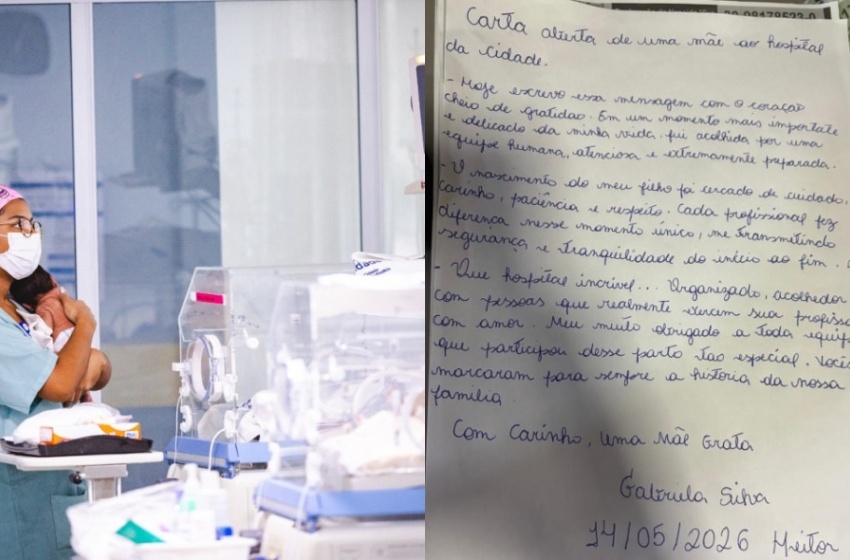 Carta aberta de uma mãe ao hospital
da cidade.
- Hoje escrevo essa mensagem com o coração
cheio de gratidão. Em um momento mais importate
e delicado da minha vida, fui acolhida por uma
equipe humana, atenciosa e extremamente preparada.
- O nascimento do meu filho foi cercado de cuidado,
carinho, paciência e respeito. Cada profissional fez
diferença nesse momento único, me transmitindo
segurança e tranquilidade do início ao fim.
- Que hospital incrível... Organizado, acolhedor
com pessoas que realmente exercem sua profissã
com amor. Meu muito obrigado a toda equip
que participou desse parto tao especial. Vocês
marcaram para sempre a historia da nossa
familia.
Com Carinho, uma Mãe Grata
Gabriela Silva
14/05/2026 Heitor